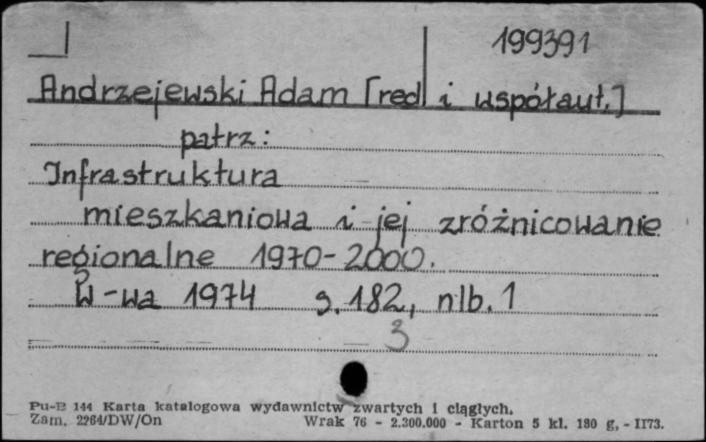 199391
Andrzejewski Adam [red i współaut.]
patrz:
Infrastruktura
mieszkaniowa i jej zróżnicowanie
regionalne 1970-2000.
W-wa 1974 s. 182, nlb. 1
3
Pu-B 144 Karta katalogowa wydawnictw zwartych i ciągłych.
Zam. 2264/DW/On Wrak 76 - 2.300.000 - Karton 5 kl. 180 g. - II73.